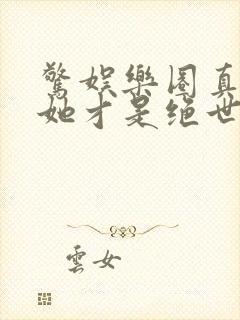 驚娛樂圈真
她才是絕世
雲女